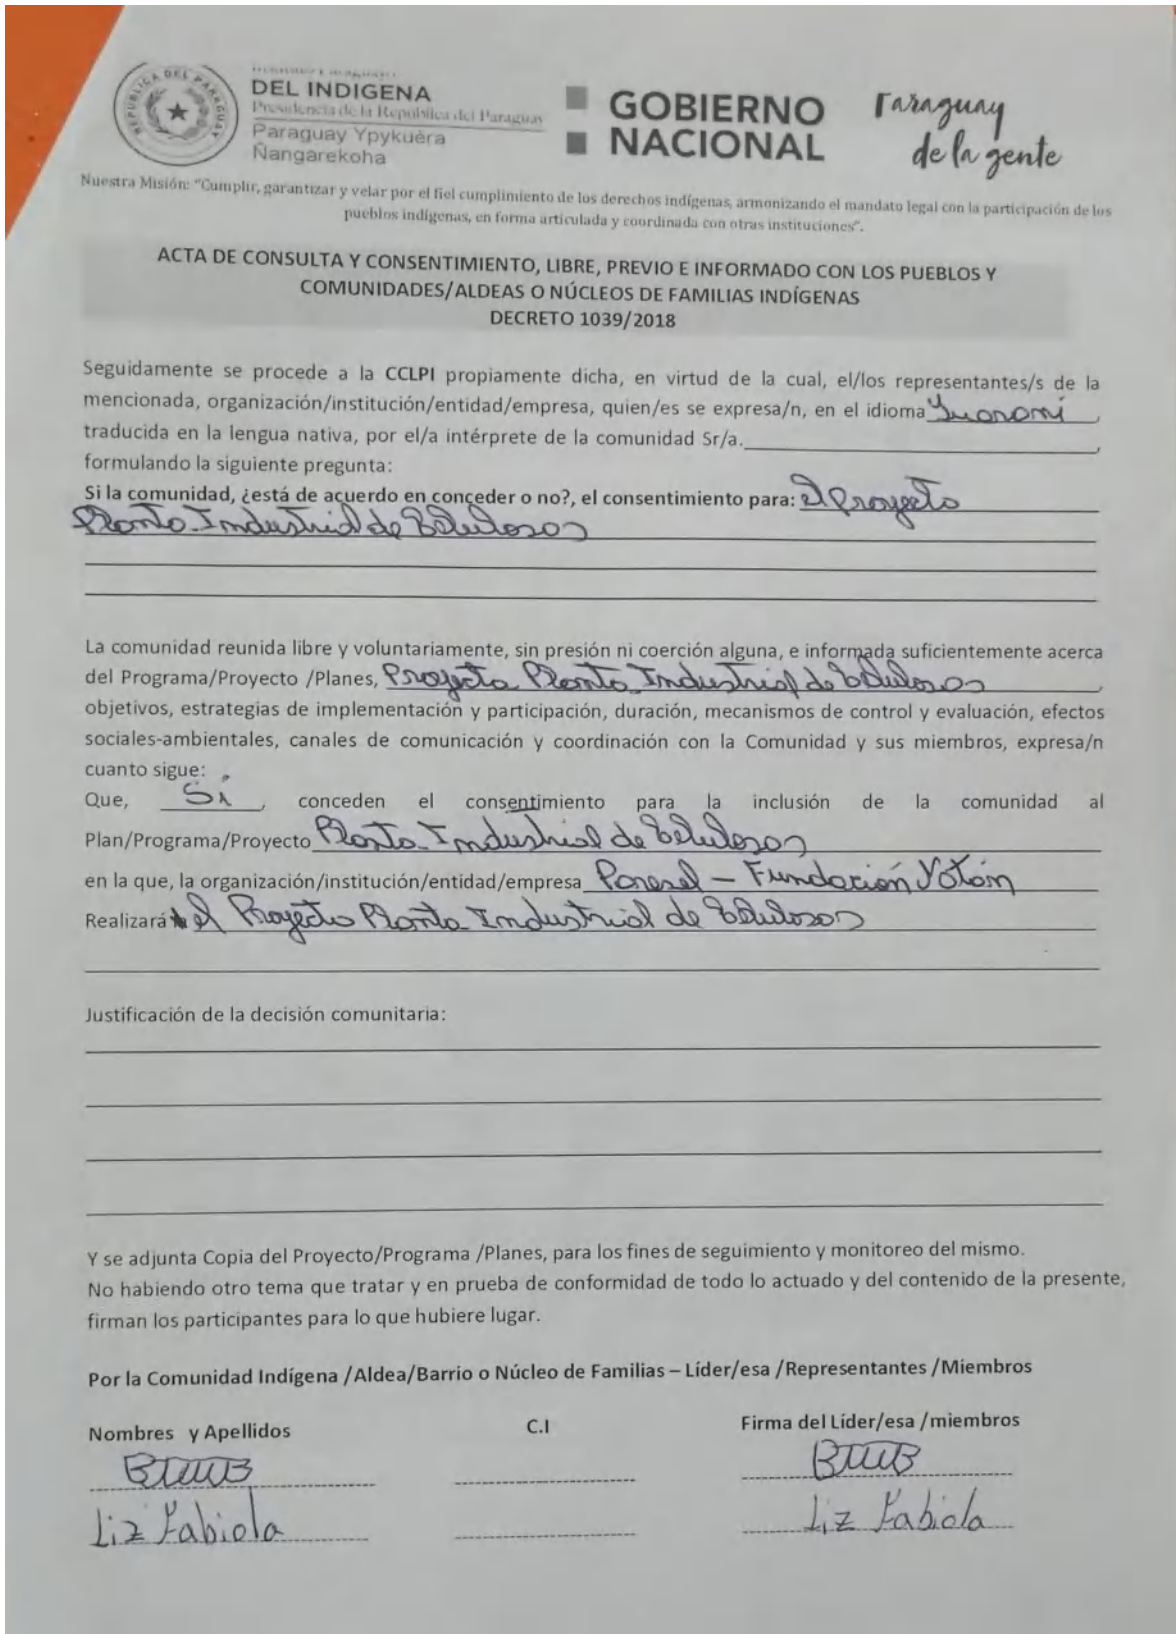 REPUBLICA DEL PARAGUAY
DEL INDIGENA
Presidencia de la República del Paraguay
Paraguay Ypykuéra
Ñangarekoha
GOBIERNO
NACIONAL
Paraguay
de la gente
Nuestra Misión: "Cumplir, garantizar y velar por el fiel cumplimiento de los derechos indígenas, armonizando el mandato legal con la participación de los
pueblos indígenas, en forma articulada y coordinada con otras instituciones".
ACTA DE CONSULTA Y CONSENTIMIENTO, LIBRE, PREVIO E INFORMADO CON LOS PUEBLOS Y
COMUNIDADES/ALDEAS O NÚCLEOS DE FAMILIAS INDÍGENAS
DECRETO 1039/2018
Seguidamente se procede a la CCLPI propiamente dicha, en virtud de la cual, el/los representantes/s de la
mencionada, organización/institución/entidad/empresa, quien/es se expresa/n, en el idioma Guaraní,
traducida en la lengua nativa, por el/a intérprete de la comunidad Sr/a. ,
formulando la siguiente pregunta:
Si la comunidad, ¿está de acuerdo en conceder o no?, el consentimiento para: El Proyecto
Planta Industrial de Celulosas
La comunidad reunida libre y voluntariamente, sin presión ni coerción alguna, e informada suficientemente acerca
del Programa/Proyecto /Planes, Proyecto Planta Industrial de Celulosas,
objetivos, estrategias de implementación y participación, duración, mecanismos de control y evaluación, efectos
sociales-ambientales, canales de comunicación y coordinación con la Comunidad y sus miembros, expresa/n
cuanto sigue:
Que, Sí, conceden el consentimiento para la inclusión de la comunidad al
Plan/Programa/Proyecto Planta Industrial de Celulosas
en la que, la organización/institución/entidad/empresa Paracel – Fundación
Realizará el Proyecto Planta Industrial de Celulosas
Justificación de la decisión comunitaria:
Y se adjunta Copia del Proyecto/Programa /Planes, para los fines de seguimiento y monitoreo del mismo.
No habiendo otro tema que tratar y en prueba de conformidad de todo lo actuado y del contenido de la presente,
firman los participantes para lo que hubiere lugar.
Por la Comunidad Indígena /Aldea/Barrio o Núcleo de Familias – Líder/esa /Representantes /Miembros
Nombres y Apellidos C.I Firma del Líder/esa /miembros
Liz Fabiola Liz Fabiola